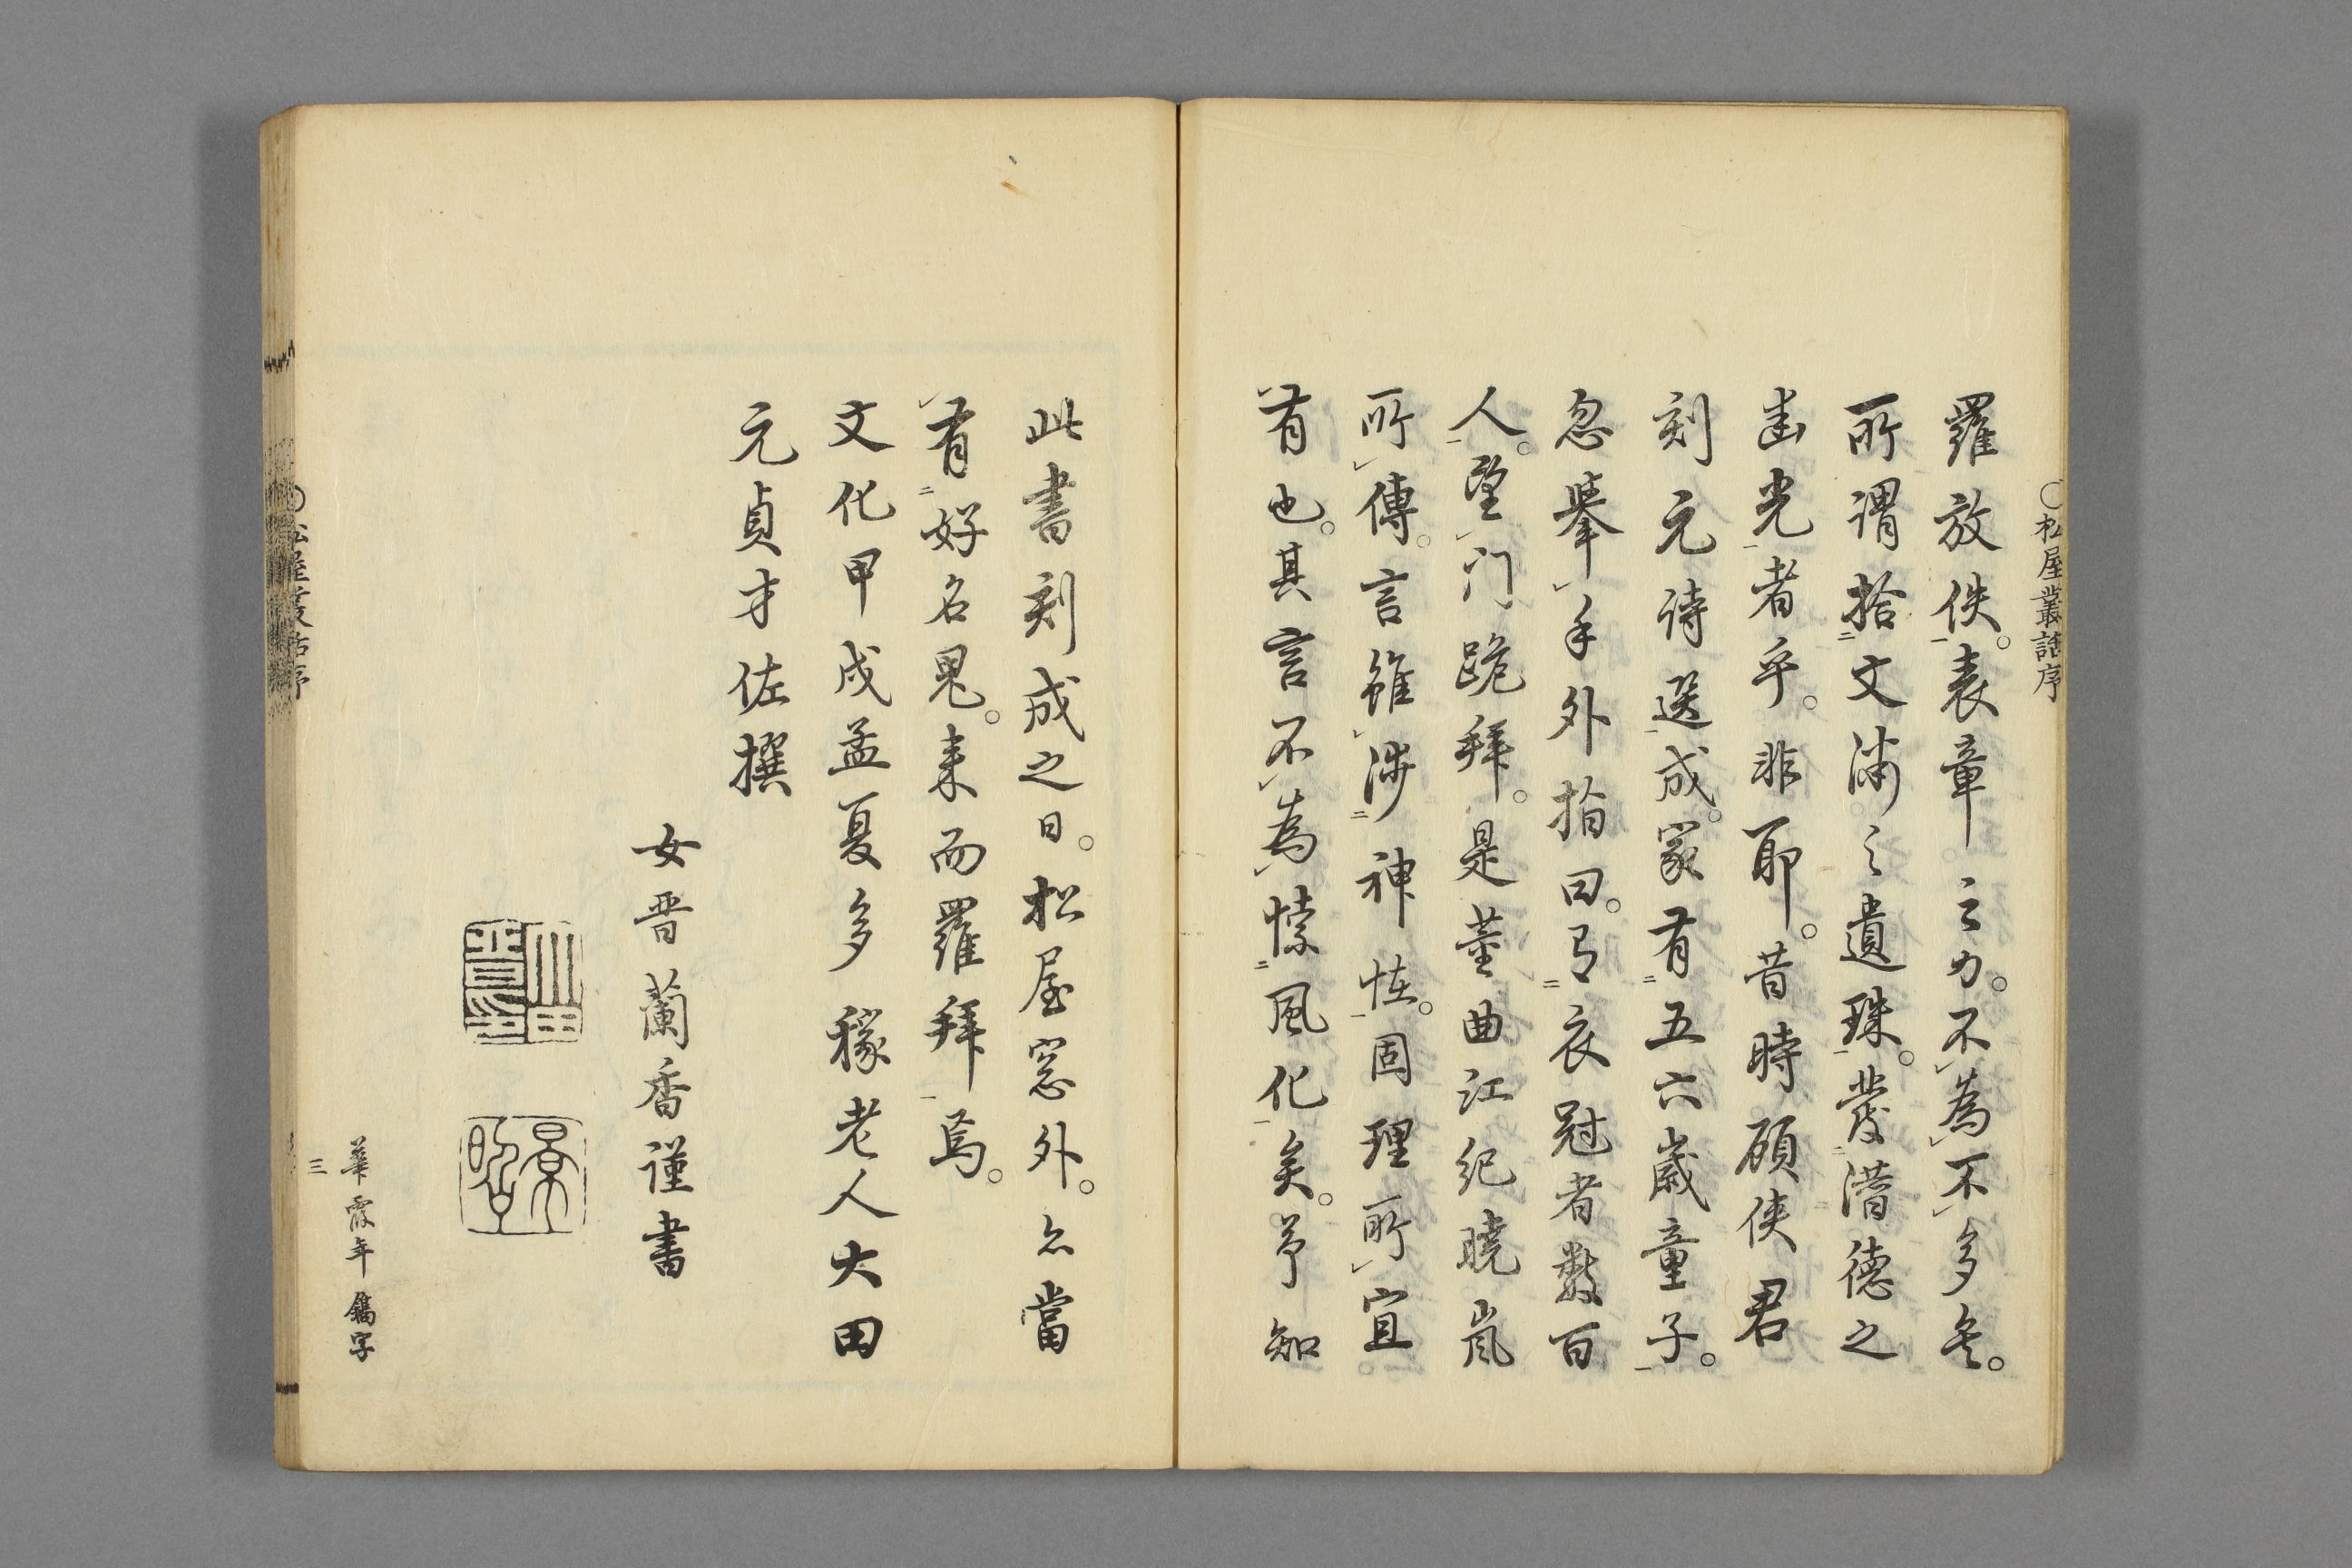 ○松屋叢話序
羅放佚。表章之力。不為不多矣。
所謂拾文海之遺珠。發潛德之
幽光者乎。非耶。昔時顧俠君
刻元詩選成。家有五六歲童子。
忽擧手外指曰。有衣冠者數百
人。望門跪拜。是董曲江紀曉嵐
所傳。言雖涉神怪。固理所宜
有也。其言不為愫風化矣。予知
此書刻成之日。松屋窓外。亦當
有好名鬼。来而羅拜焉。
文化甲戌孟夏多稼老人大田
元貞才佐撰
女晋蘭香謹書
華霞年鐫字
三
○松屋叢話序